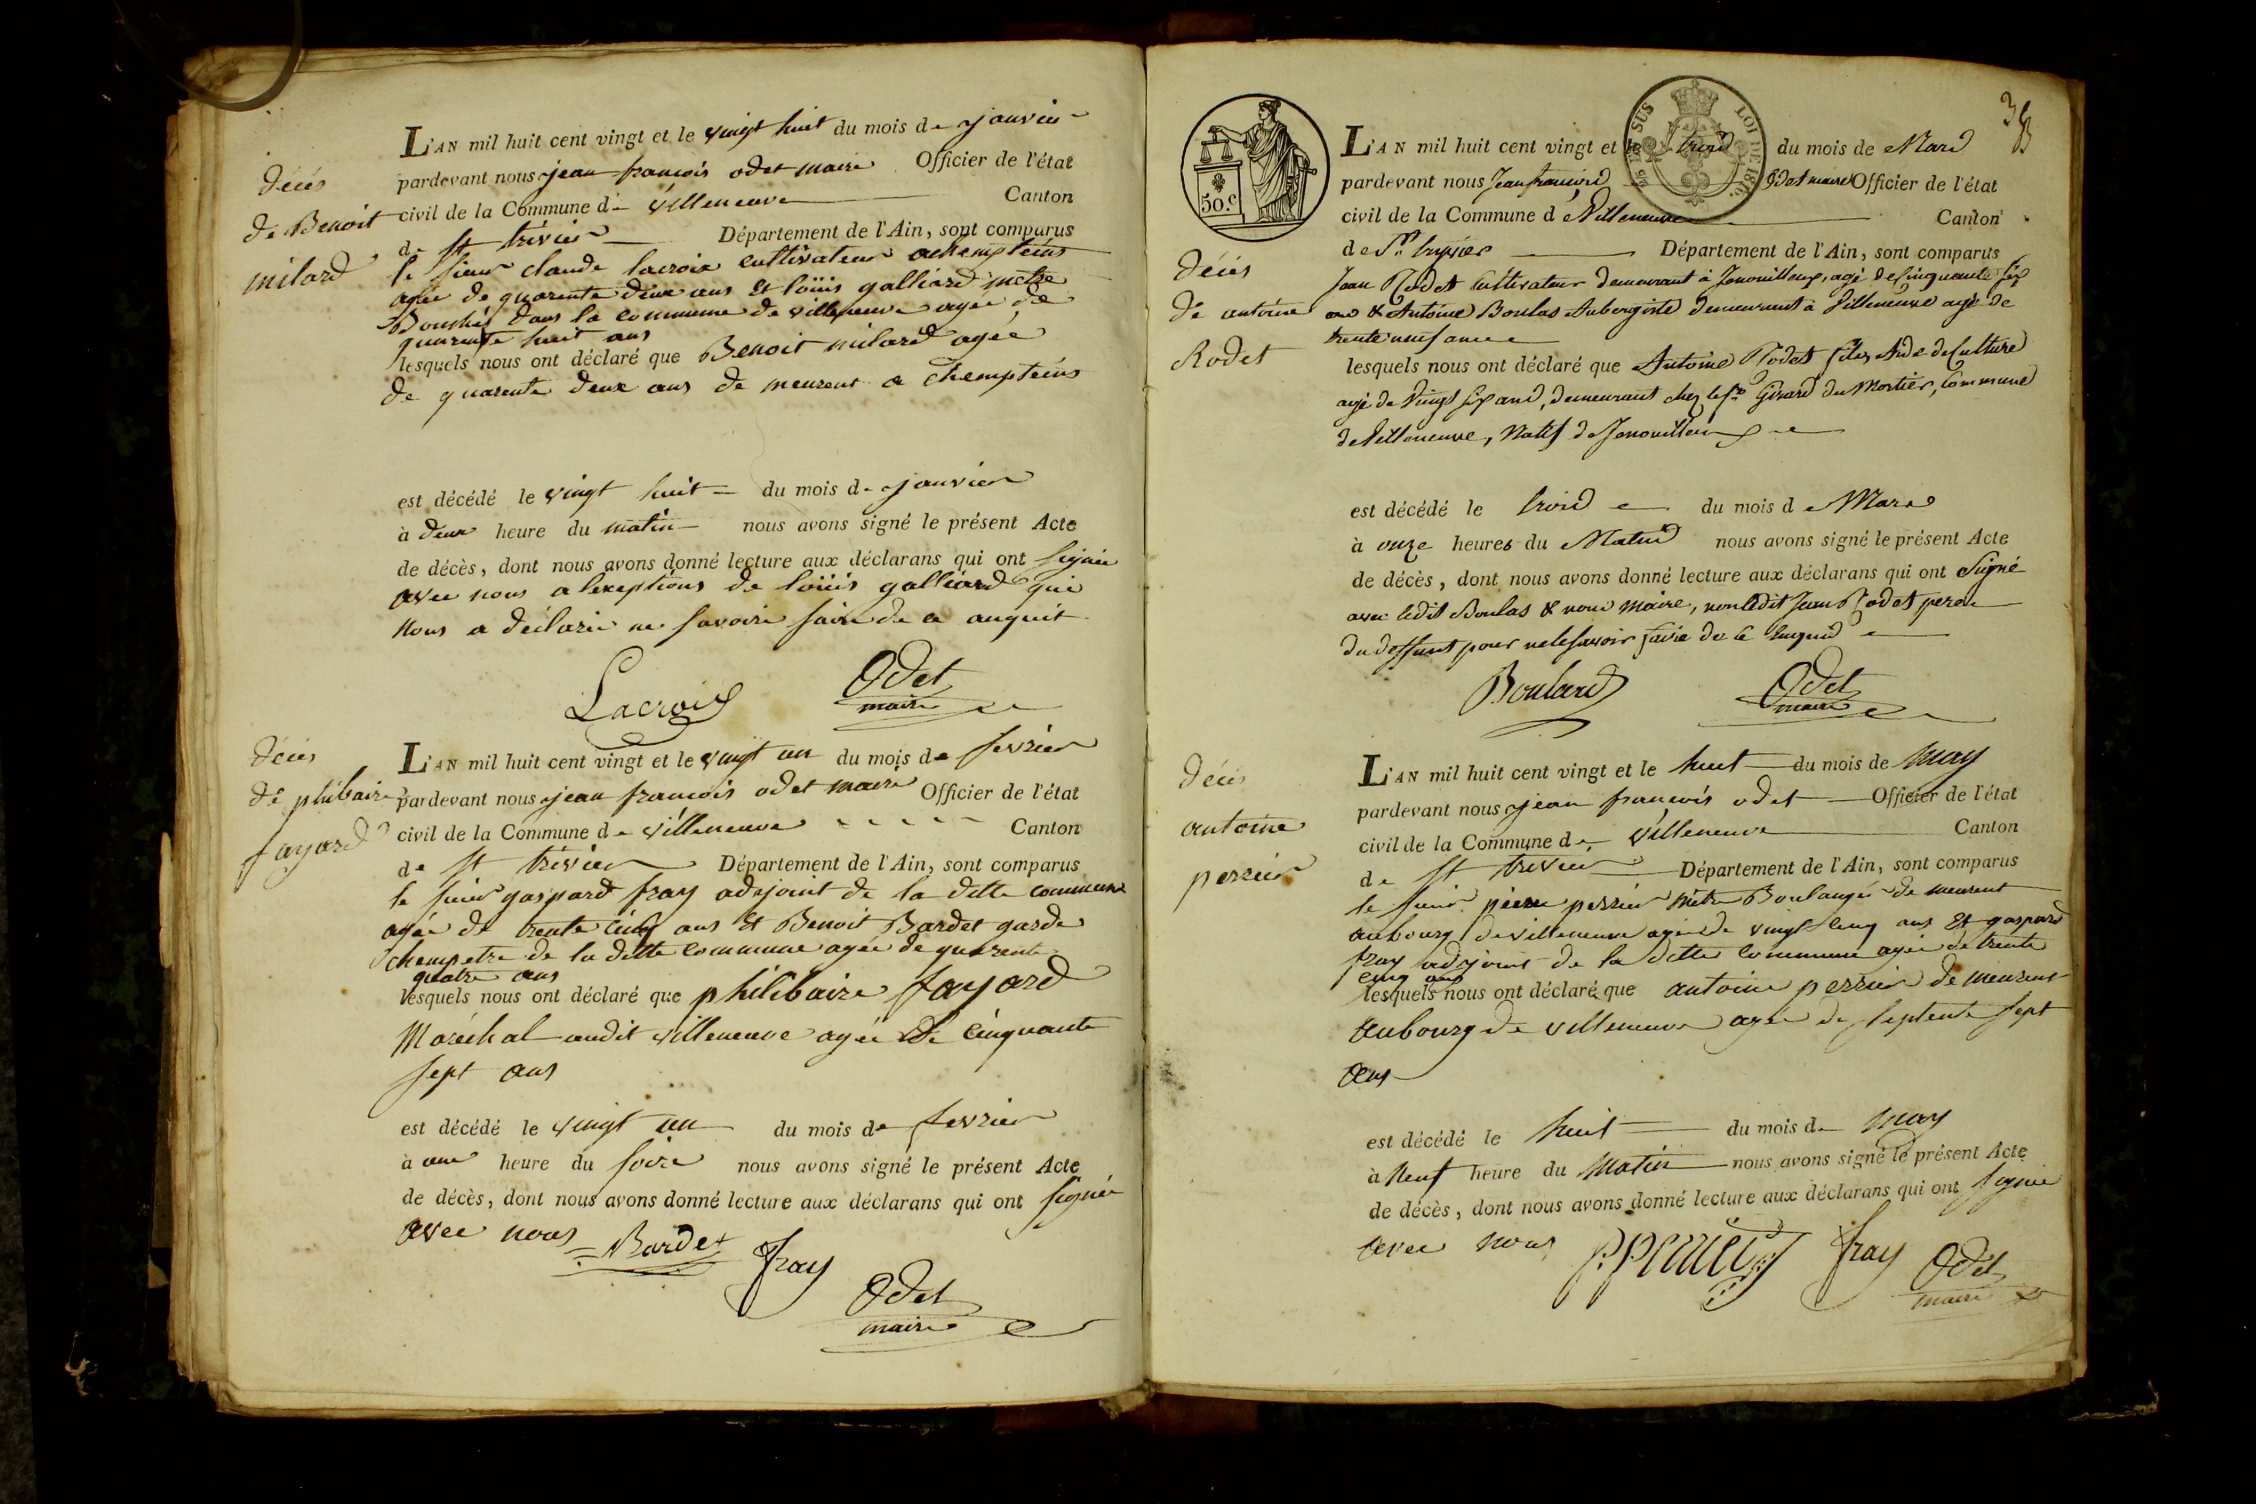 L'AN mil huit cent vingt et le vingt huit du mois de janvier
pardevant nous jean francois odet maire Officier de l'état
civil de la Commune de villeneuve Canton
de st trivier Département de l'Ain, sont comparus
le sieur claude lacroix cultivateur achempteins
agée de quarente deux ans et loüis galliard metre
Bouché dans la commune de villeneuve agée de
quarente huit ans
lesquels nous ont déclaré que Benoit milard agée
de quarente deux ans de meurent a chempteins
décés
de Benoit
milard
est décédé le vingt huit du mois de janvier
à deux heure du matin nous avons signé le présent Acte
de décès, dont nous avons donné lecture aux déclarans qui ont signée
avec nous a lexeptions de loüis galliard qui
nous a déclarie ne savoire faire de ce anquit
Lacroix Odet
maire
décés
de philibaire
fayard
L'AN mil huit cent vingt et le vingt un du mois de fevrier
pardevant nous jean francois odet maire Officier de l'état
civil de la Commune de villeneuve Canton
de st trivier Département de l'Ain, sont comparus
le sieur gaspard fray adejoint de la ditte commune
agée de trente cinq ans et Benoit Bardet garde
chempetre de la ditte commune agée de quarente
quatre ans
lesquels nous ont déclaré que philibaire fayard
Maréchal audit villeneuve agée de cinquante
sept ans
est décédé le vingt un du mois de fevrier
à une heure du soire nous avons signé le présent Acte
de décès, dont nous avons donné lecture aux déclarans qui ont signée
avec nous
Bardet fray
Odet
maire
38
50.c
LOI DE 1816.
L'AN mil huit cent vingt et le trois du mois de Mars
pardevant nous Jean françois Odet maire Officier de l'état
civil de la Commune de Villeneuve Canton
de St. trivier Département de l'Ain, sont comparus
Jean Rodet Cultivateur demeurant à Jenouilleux, agé de Cinquante six
ans & Antoine Boulas Aubergiste demeurant à Villeneuve agé de
trente neuf ans
décés
de antoine
Rodet
lesquels nous ont déclaré que Antoine Rodet fils, Aide de Culture
agé de Vingt six ans, demeurant chez le Sr. Girard du Mortier, Commune
de Villeneuve, Natif de Jenouilleux
est décédé le trois du mois de Mars
à onze heures du Matin nous avons signé le présent Acte
de décès, dont nous avons donné lecture aux déclarans qui ont Signé
avec ledit Boulas & nous maire, non ledit Jean Rodet pere
du deffunt pour ne le savoir faire de ce Enquis
Boulard Odet
maire
décés
antoine
perrier
L'AN mil huit cent vingt et le huit du mois de may
pardevant nous jean francois odet Officier de l'état
civil de la Commune de villeneuve Canton
de st trivier Département de l'Ain, sont comparus
le sieur pierre perrier mètre Boulanger de meurent
aubourg de villeneuve agée de vingt cinq ans et gaspard
fray adejoint de la ditte commune agée de trente
cinq ans
lesquels nous ont déclaré que antoine perrier de meurent
aubourg de villeneuve agée de septente sept
ans
est décédé le huit du mois de may
à neuf heure du matin nous avons signé le présent Acte
de décès, dont nous avons donné lecture aux déclarans qui ont signée
avec nous P. perrier fray Odet
maire